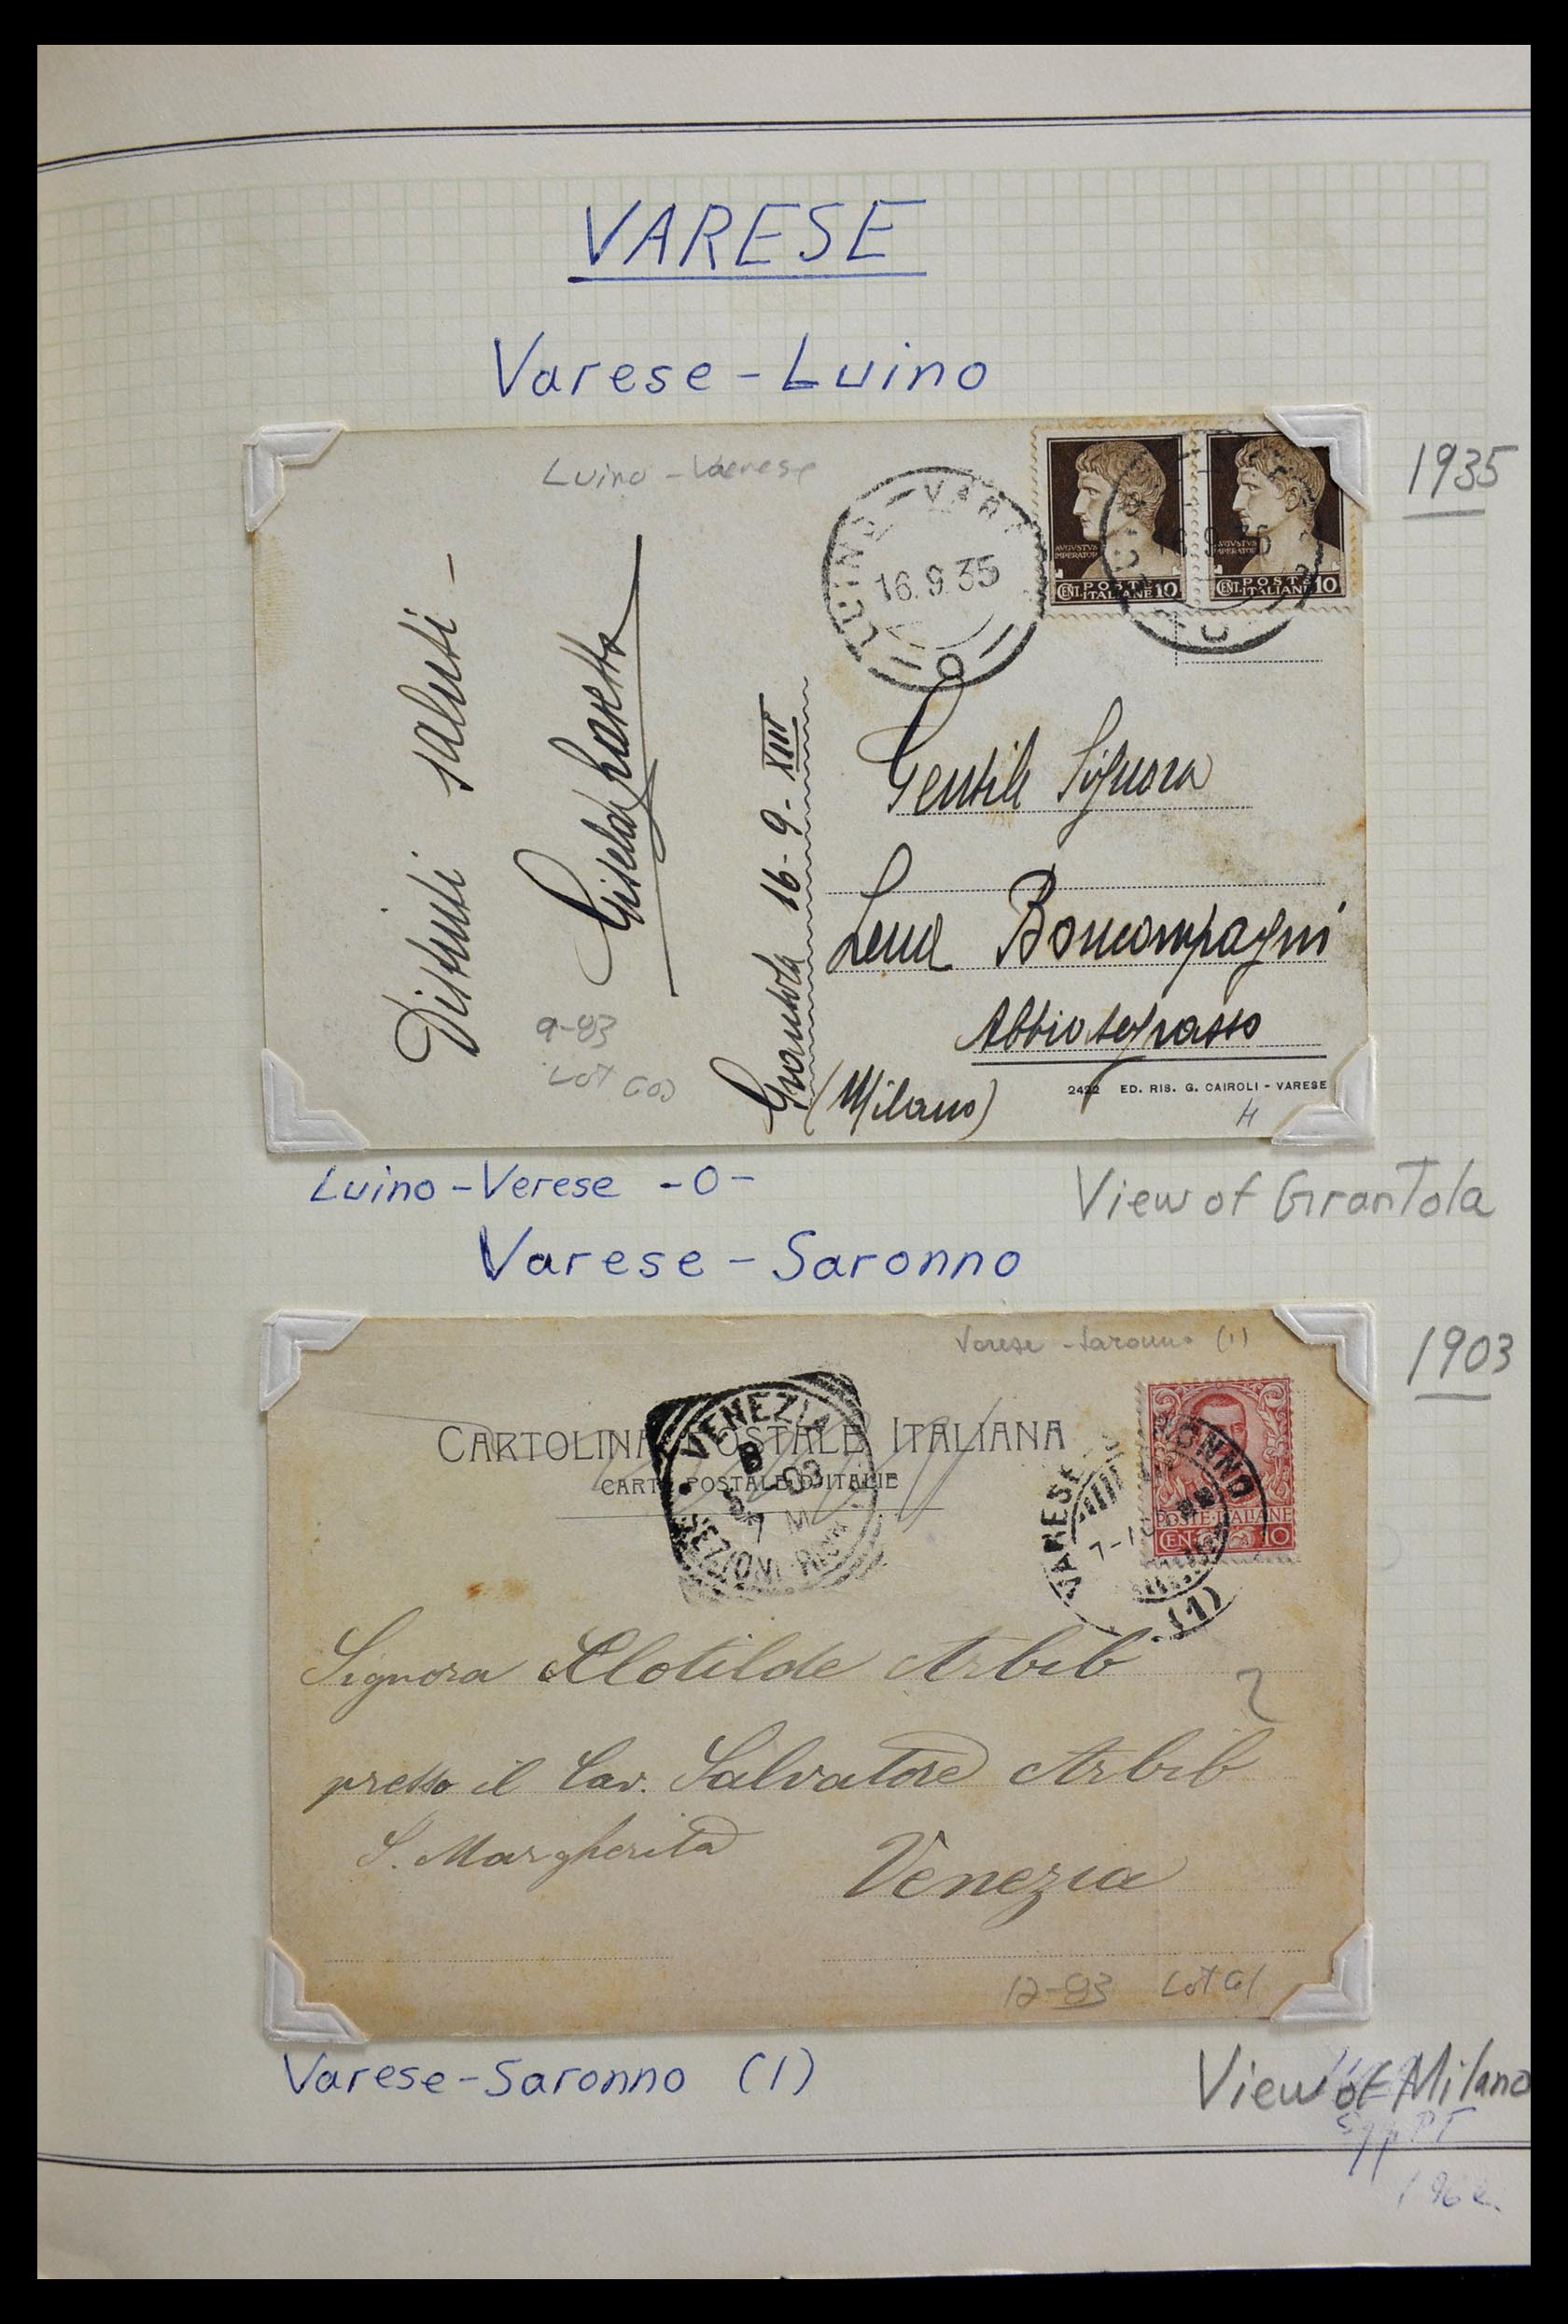 VARESE
Varese - Luino
1935
Luino - Varese
LUINO - VARE
16.9.35
0
AVGVSTVS
IMPERATOR
CENT. POSTE ITALIANE 10
AVGVSTVS
IMPERATOR
CENT. POSTE ITALIANE 10
Distinti saluti -
Giselda
Grantola 16-9-XIII
Gentile Signora
Lena Boncompagni
Abbiategrasso
(Milano)
9-83
Lot
2422 ED. RIS. G. CAIROLI - VARESE
H
Luino - Verese -0-
View of Grantola
Varese - Saronno
1903
Varese - Saronno (1)
CARTOLINA POSTALE ITALIANA
CARTE POSTALE D'ITALIE
VENEZIA
8
03
7 M
SEZIONI
VARESE RONNO
(1)
POSTE ITALIANE
CEN 10
Signora Clotilde Arbib
2
presso il Cav. Salvatore Arbib
S. Margherita
Venezia
12-93 Lot
Varese - Saronno (1)
View of Milano